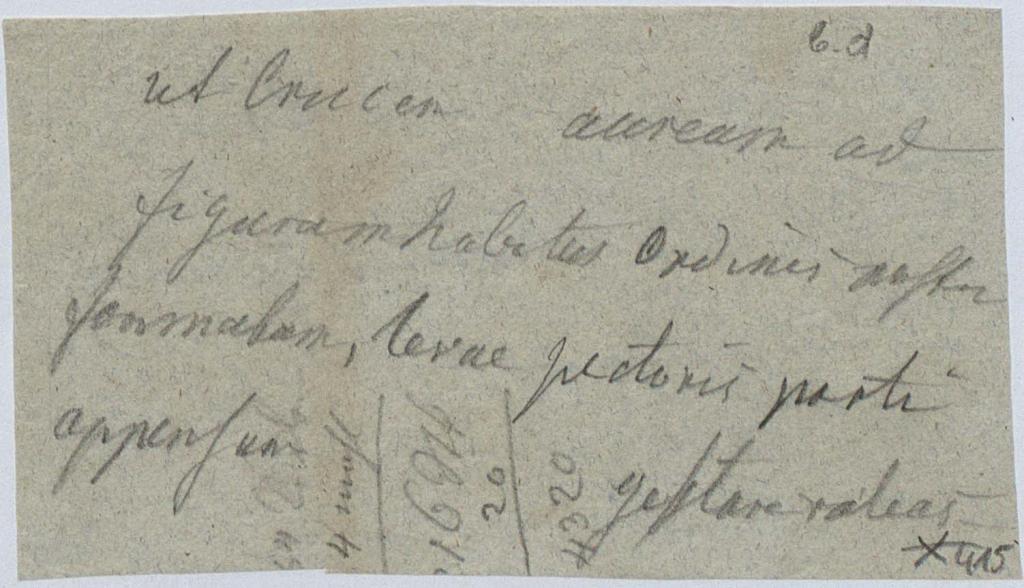 6.d
ut Crucem aureum ad
figuram habitus Ordinis nostri
formatam, levae pectoris parti
appensam gestare valeas
4
21694
20
4320
×415